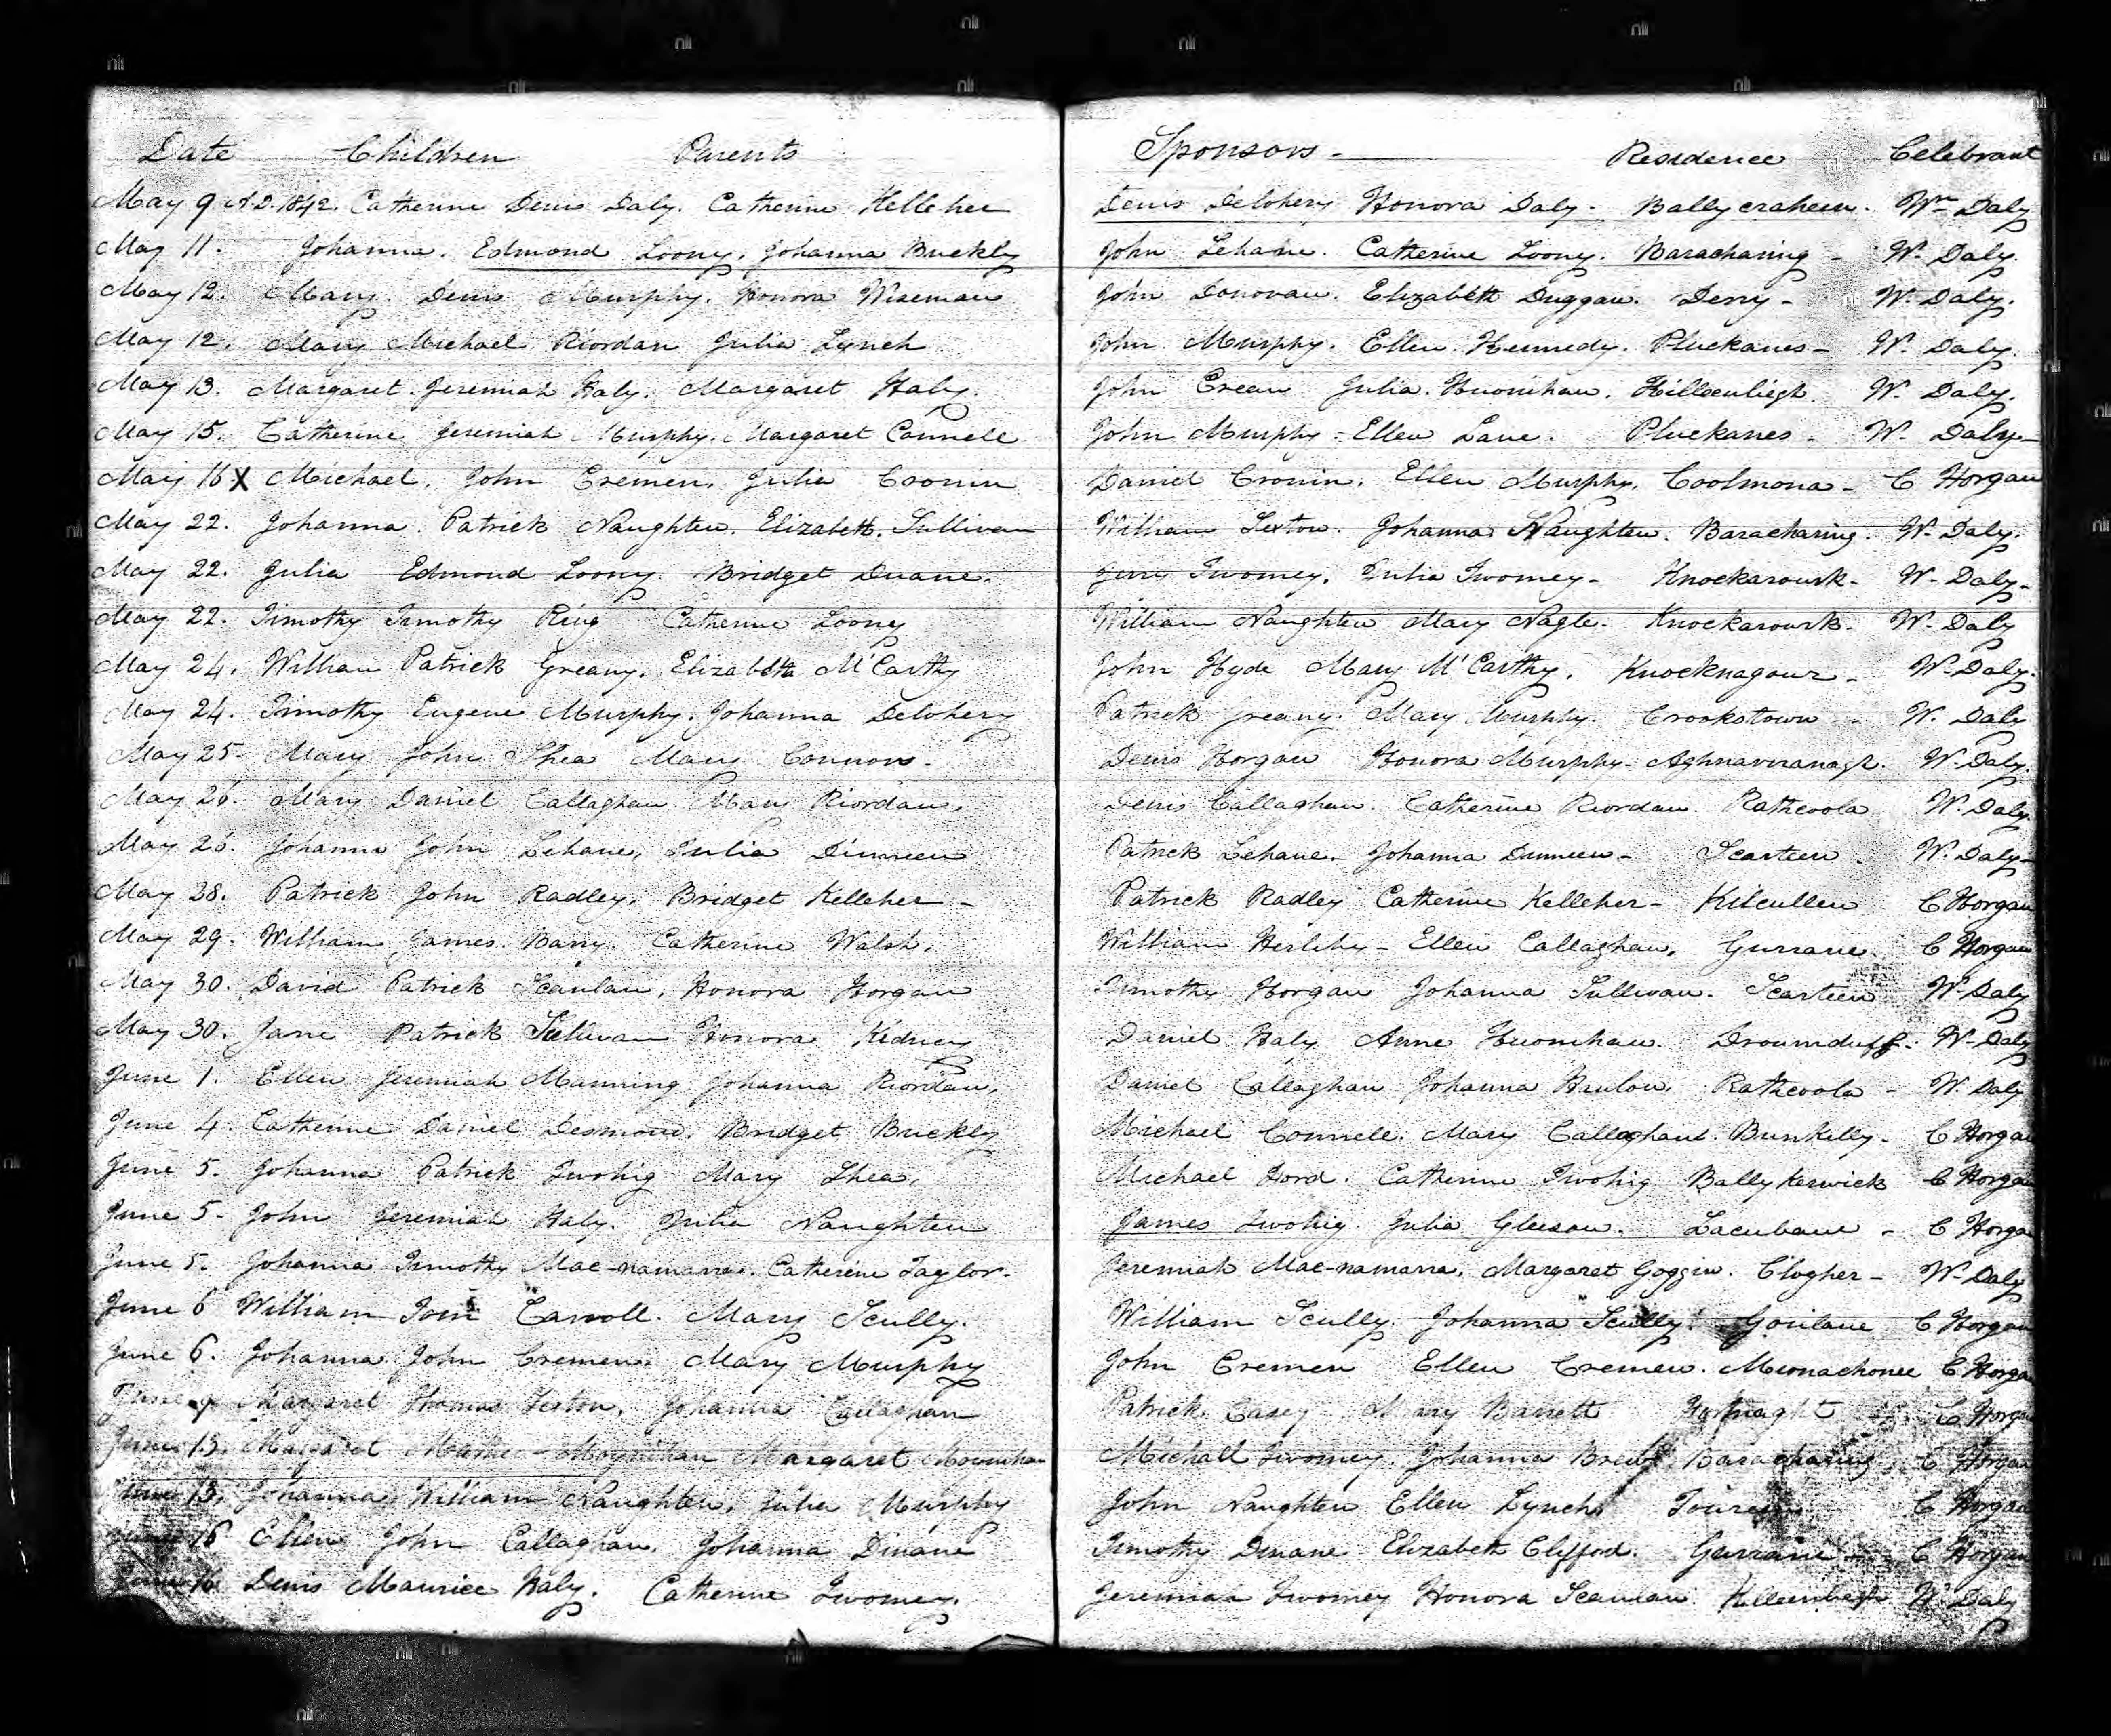 Date Children Parents Sponsors - Residence Celebrant
May 9 A.D. 1842. Catherine Denis Daly. Catherine Kelleher Denis Delohery Honora Daly. Ballycraheen. Wm Daly
May 11. Johanna. Edmond Loony. Johanna Buckly John Lehane. Catherine Loony. Baracharing - W. Daly.
May 12. Mary. Denis Murphy. Honora Wiseman John Donovan. Elizabeth Duggan. Derry - W. Daly.
May 12. Mary Michael Riordan Julia Lynch John Murphy. Ellen Kennedy. Pluckanes - W. Daly.
May 13. Margaret. Jeremiah Haly. Margaret Haly. John Crean Julia. W. Daly.
May 15. Catherine Jeremiah Murphy. Margaret Connell John Murphy - Ellen Lane. Pluckanes - W. Daly -
May 16 X Michael. John Cremen. Julia Cronin Daniel Cronin. Ellen Murphy. Coolmona - C Horgan
May 22. Johanna. Patrick Naughten. Elizabeth. Sullivan William Sexton. Johanna Naughten. Baracharing. W. Daly.
May 22. Julia Edmond Loony. Bridget Duane. Jerry Twomey. Julia Twomey - Knockarourk - W. Daly -
May 22. Timothy Timothy Ring Catherine Loony William Naughten Mary Nagle - Knockarourk - W. Daly
May 24. William Patrick Greany. Elizabeth McCarthy John Hyde Mary McCarthy. Knocknagour - W. Daly.
May 24. Timothy Eugene Murphy. Johanna Delohery Patrick Greany. Mary Murphy. Crookstown - W. Daly
May 25. Mary John Shea Mary Connors - Denis Horgan Honora Murphy - W. Daly.
May 26. Mary Daniel Callaghan Mary Riordan. Denis Callaghan. Catherine Riordan Rathcoola W. Daly.
May 26. Johanna John Lehane. Julia Dinneen Patrick Lehane. Johanna Dinneen - Scarteen W. Daly -
May 28. Patrick John Radley. Bridget Kelleher - Patrick Radley Catherine Kelleher - Kilcullen C Horgan
May 29. William James Barry. Catherine Walsh. William Herlihy - Ellen Callaghan. Gurrane C Horgan
May 30. David Patrick Scanlan. Honora Horgan Timothy Horgan Johanna Sullivan - Scarteen W. Daly
May 30. Jane Patrick Sullivan Honora Kidney Daniel Haly Anne Huonihan. Droumduff - W. Daly
June 1. Ellen Jeremiah Manning Johanna Riordan. Daniel Callaghan Johanna Hanlon Rathcoola - W. Daly
June 4. Catherine Daniel Desmond. Bridget Buckly Michael Connell. Mary Callaghan. Bunkilly - C Horgan
June 5. Johanna Patrick Twohig Mary Shea. Michael Ford. Catherine Twohig Ballykerwick C Horgan
June 5. John Jeremiah Haly. Julia Naughten James Twohig. Julia Gleeson. Lacubane - C Horgan
June 5. Johanna Timothy Mac-namara. Catherine Taylor - Jeremiah Mac-namara. Margaret Goggin. Clogher - W. Daly
June 6 William Tom Carroll. Mary Scully. William Scully. Johanna Scully. Goulane C Horgan
June 6. Johanna John Cremen. Mary Murphy John Cremen Ellen Cremen. C Horgan
June 9 Margaret Thomas Sexton. Johanna Callaghan Patrick Casey Mary Barrett Fortnaght C Horgan
June 13. Margaret Moynihan Margaret Moynihan Michall Twomey. Johanna Baracharing C Horgan
June 13. Johanna William Naughten. Julia Murphy John Naughten Ellen Lynch. C Horgan
June 16 Ellen John Callaghan. Johanna Dinane Timothy Dinane Elizabeth Clifford. Gurrane - C Horgan
June 16 Denis Maurice Haly. Catherine Twomey. Jeremiah Twomey Honora Scanlan. W. Daly